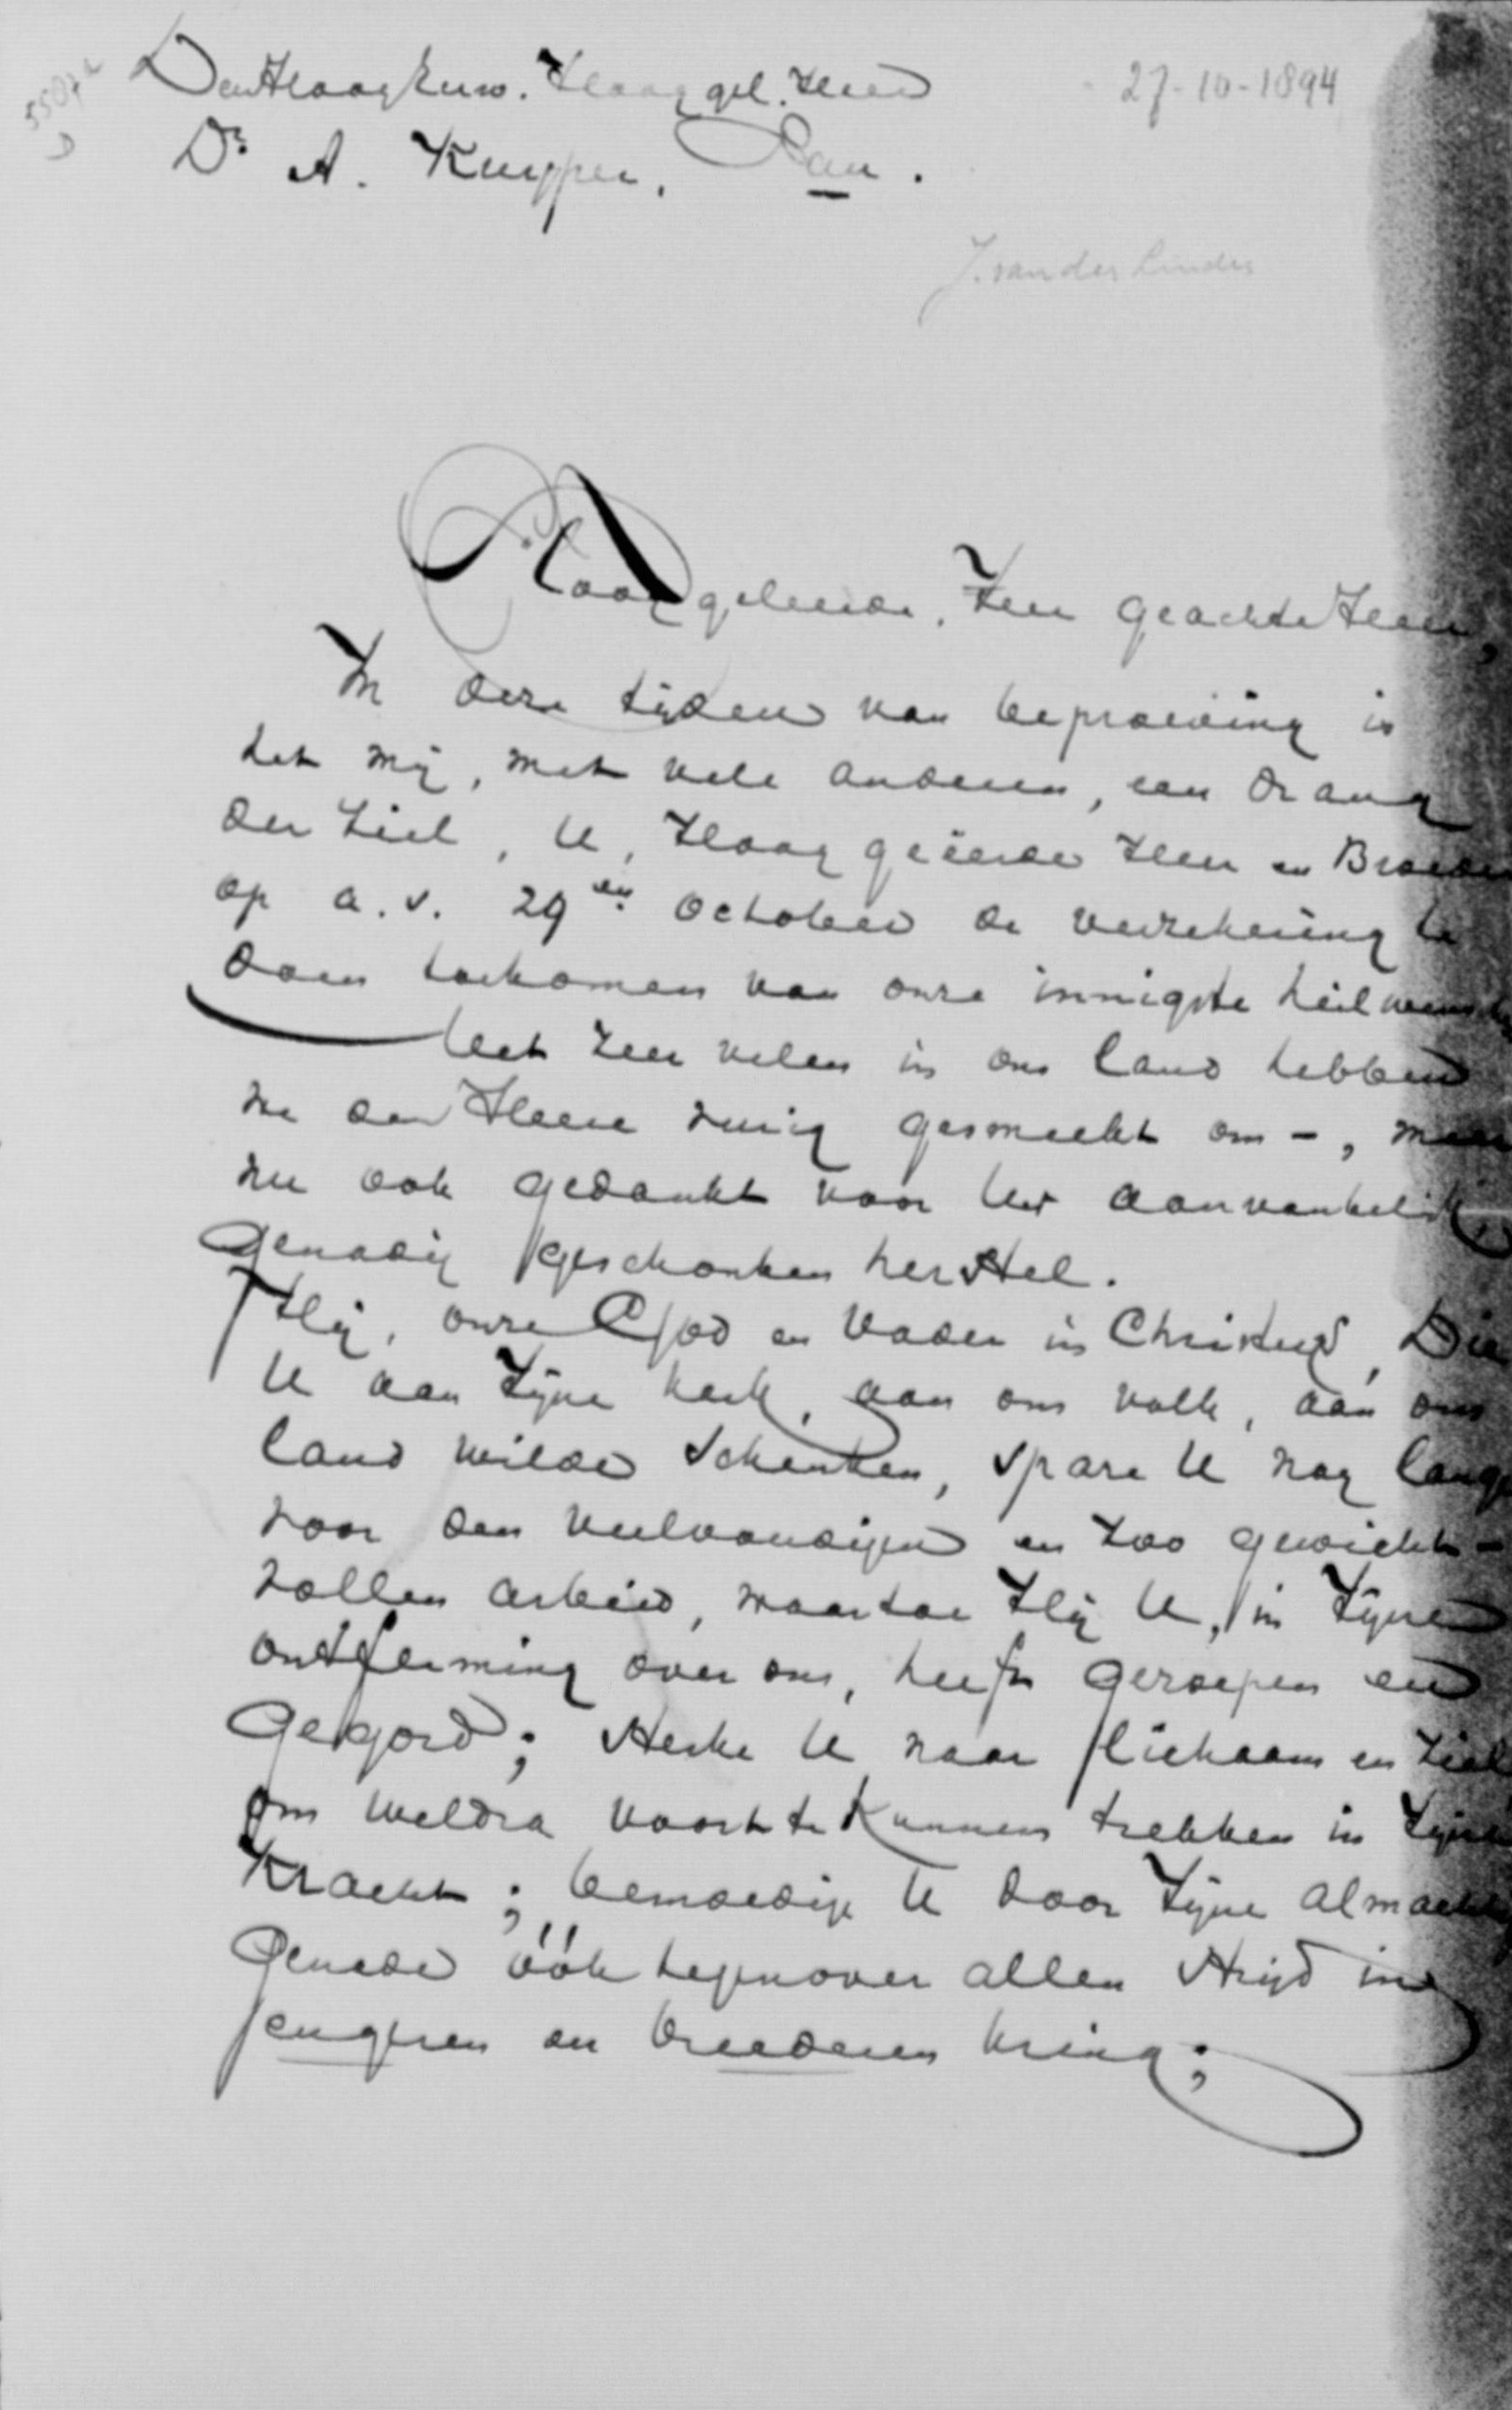 5507a
Den HoogEerw. Hooggel. Heer
27-10-1894
Dr. A. Kuyper, Pau.
J. van der Linden
Hooggeleerde, Zeer geachte Heer,
In deze tijden van beproeving is
het mij, met vele anderen, een drang
der ziel, U, Hoog geëerde Heer en Broeder
op a.s. 29en October de verzekering te
doen toekomen van onze innigste heilwensch
Met zeer velen in ons land hebben
we den Heere vurig gesmeekt om -, maar
nu ook gedankt voor Uw aanvankelijk,
genadig geschonken herstel.
Hij, onze God en Vader in Christus, Die
U aan Zijne kerk, aan ons volk, aan ons
land wilde schenken, spare U nog lang
voor den veelvoudigen en zoo gewicht-
vollen arbeid, waartoe Hij U, in Zijne
ontferming over ons, heeft geroepen en
gegord; sterke U naar lichaam en ziel
om weldra voort te kunnen trekken in Zijne
kracht; bemoedige U door Zijne almacht
genade óók tegenover allen strijd in
engeren en breederen kring;